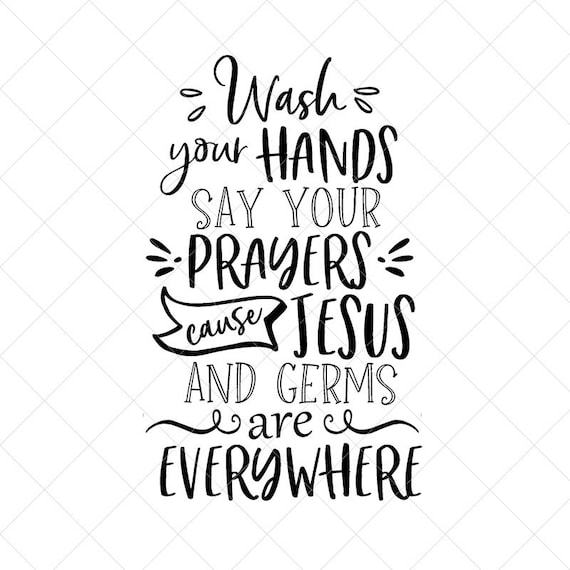 Wash
your HANDS
SAY YOUR
PRAYERS
cause JESUS
AND GERMS
are
EVERYWHERE